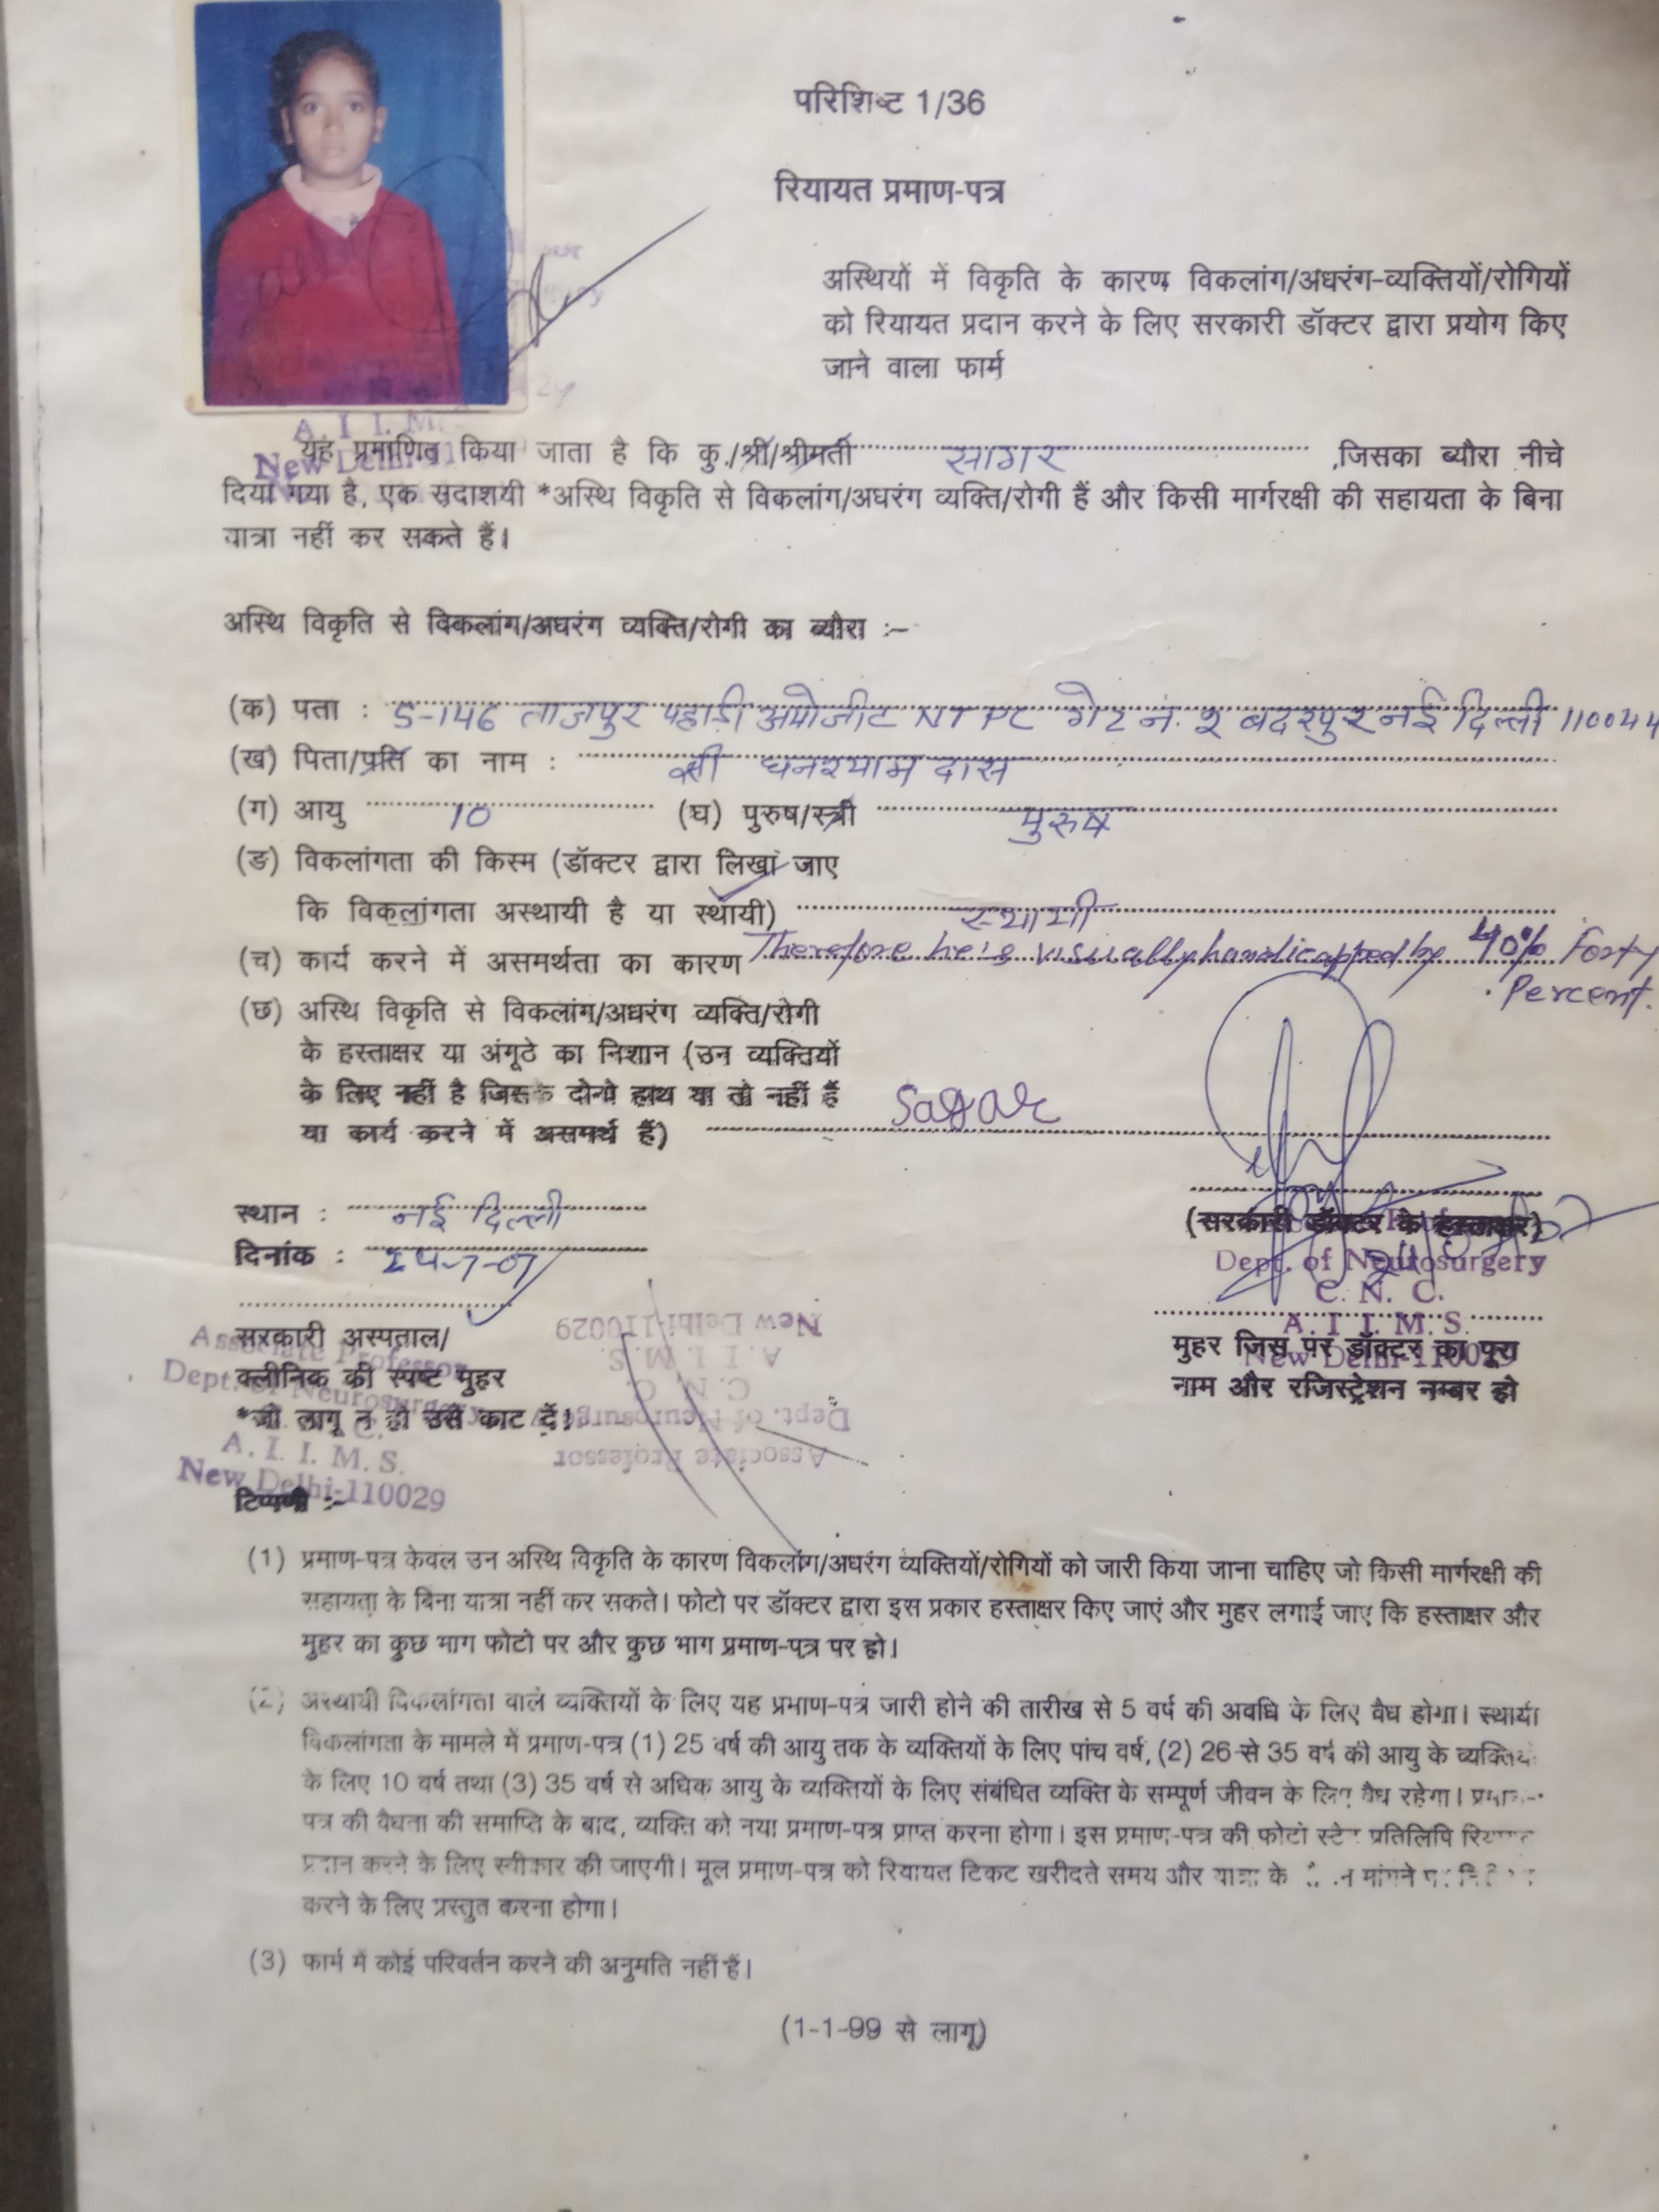 परिशिष्ट 1/36
रियायत प्रमाण-पत्र
अस्थियों में विकृति के कारण विकलांग/अधरंग-व्यक्तियों/रोगियों
को रियायत प्रदान करने के लिए सरकारी डॉक्टर द्वारा प्रयोग किए
जाने वाला फार्म
A. I. I. M.
New Delhi
यह प्रमाणित किया जाता है कि कु./श्री/श्रीमती सागर ,जिसका ब्यौरा नीचे
दिया गया है, एक सदाशयी *अस्थि विकृति से विकलांग/अधरंग व्यक्ति/रोगी हैं और किसी मार्गरक्षी की सहायता के बिना
यात्रा नहीं कर सकते हैं।
अस्थि विकृति से विकलांग/अधरंग व्यक्ति/रोगी का ब्यौरा :-
(क) पता : 5-146 ताजपुर पहाडी NTPC गेट नं. २ बदरपुर नई दिल्ली 110044
(ख) पिता/पति का नाम : श्री घनश्याम दास
(ग) आयु 10 (घ) पुरुष/स्त्री पुरुष
(ङ) विकलांगता की किस्म (डॉक्टर द्वारा लिखा जाए
कि विकलांगता अस्थायी है या स्थायी) स्थायी
(च) कार्य करने में असमर्थता का कारण Therefore he is visually handicapped by 40% Forty
Percent.
(छ) अस्थि विकृति से विकलांग/अधरंग व्यक्ति/रोगी
के हस्ताक्षर या अंगूठे का निशान (उन व्यक्तियों
के लिए नहीं है जिसके दोनो हाथ या तो नहीं हैं
या कार्य करने में असमर्थ हैं) Sagar
स्थान : नई दिल्ली
दिनांक : 24-7-07
(सरकारी डॉक्टर के हस्ताक्षर)
Dept. of Neurosurgery
C. N. C.
A. I. I. M. S.
New Delhi-110029
मुहर जिस पर डॉक्टर का पूरा
नाम और रजिस्ट्रेशन नम्बर हो
सरकारी अस्पताल/
क्लीनिक की स्पष्ट मुहर
*जो लागू न हो उसे काट दें।
Associate Professor
Dept. of Neurosurgery
A. I. I. M. S.
New Delhi-110029
Associate Professor
Dept. of Neurosurgery
C. N. C.
A. I. I. M. S.
New Delhi-110029
टिप्पणी :-
(1) प्रमाण-पत्र केवल उन अस्थि विकृति के कारण विकलांग/अधरंग व्यक्तियों/रोगियों को जारी किया जाना चाहिए जो किसी मार्गरक्षी की
सहायता के बिना यात्रा नहीं कर सकते। फोटो पर डॉक्टर द्वारा इस प्रकार हस्ताक्षर किए जाएं और मुहर लगाई जाए कि हस्ताक्षर और
मुहर का कुछ भाग फोटो पर और कुछ भाग प्रमाण-पत्र पर हो।
(2) अस्थायी विकलांगता वाले व्यक्तियों के लिए यह प्रमाण-पत्र जारी होने की तारीख से 5 वर्ष की अवधि के लिए वैध होगा। स्थायी
विकलांगता के मामले में प्रमाण-पत्र (1) 25 वर्ष की आयु तक के व्यक्तियों के लिए पांच वर्ष, (2) 26 से 35 वर्ष की आयु के व्यक्तियों
के लिए 10 वर्ष तथा (3) 35 वर्ष से अधिक आयु के व्यक्तियों के लिए संबंधित व्यक्ति के सम्पूर्ण जीवन के लिए वैध रहेगा। प्रमाण-
पत्र की वैधता की समाप्ति के बाद, व्यक्ति को नया प्रमाण-पत्र प्राप्त करना होगा। इस प्रमाण-पत्र की फोटो स्टेट प्रतिलिपि रियायत
प्रदान करने के लिए स्वीकार की जाएगी। मूल प्रमाण-पत्र को रियायत टिकट खरीदते समय और यात्रा के मांगने पर
करने के लिए प्रस्तुत करना होगा।
(3) फार्म में कोई परिवर्तन करने की अनुमति नहीं है।
(1-1-99 से लागू)